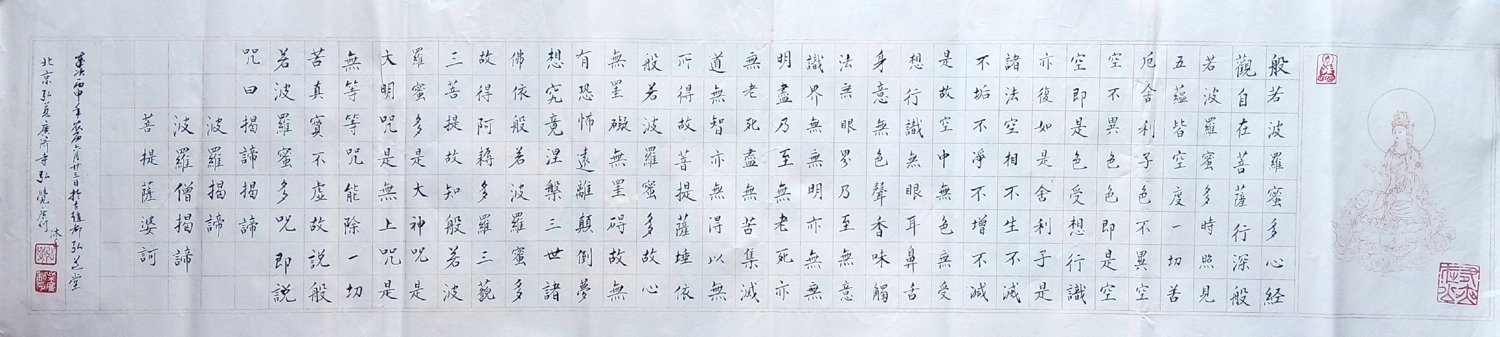 般若波羅蜜多心経
觀自在菩薩行深般
若波羅蜜多時照見
五蘊皆空度一切苦
厄舍利子色不異空
空不異色色即是空
空即是色受想行識
亦復如是舍利子是
諸法空相不生不滅
不垢不淨不增不減
是故空中無色無受
想行識無眼耳鼻舌
身意無色聲香味觸
法無眼界乃至無意
識界無無明亦無無
明盡乃至無老死亦
無老死盡無苦集滅
道無智亦無得以無
所得故菩提薩埵依
般若波羅蜜多故心
無罣礙無罣碍故無
有恐怖遠離顛倒夢
想究竟涅槃三世諸
佛依般若波羅蜜多
故得阿耨多羅三藐
三菩提故知般若波
羅蜜多是大神咒是
大明咒是無上咒是
無等等咒能除一切
苦真實不虛故説般
若波羅蜜多咒即説
咒曰揭諦揭諦
波羅揭諦
波羅僧揭諦
菩提薩婆訶
丙申年 八月廿三日於 弘芝堂
北京弘 廣济寺弘覺